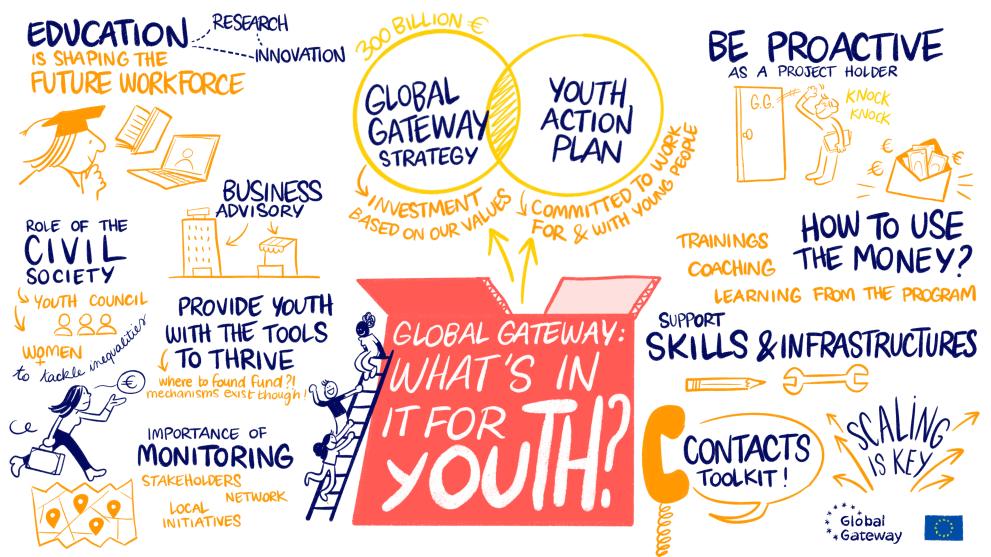 EDUCATION
RESEARCH
INNOVATION
IS SHAPING THE
FUTURE WORKFORCE
BUSINESS
ADVISORY
ROLE OF THE
CIVIL
SOCIETY
YOUTH COUNCIL
WOMEN
to tackle inequalities
€
PROVIDE YOUTH
WITH THE TOOLS
TO THRIVE
where to found fund?!
mechanisms exist though!
IMPORTANCE OF
MONITORING
STAKEHOLDERS
NETWORK
LOCAL
INITIATIVES
300 BILLION €
GLOBAL
GATEWAY
STRATEGY
YOUTH
ACTION
PLAN
INVESTMENT
BASED ON OUR VALUES
COMMITTED TO WORK
FOR & WITH YOUNG PEOPLE
GLOBAL GATEWAY:
WHAT'S IN
IT FOR
YOUTH?
BE PROACTIVE
AS A PROJECT HOLDER
G.G.
KNOCK
KNOCK
€
€
€
HOW TO USE
THE MONEY?
TRAININGS
COACHING
LEARNING FROM THE PROGRAM
SUPPORT
SKILLS & INFRASTRUCTURES
CONTACTS
TOOLKIT!
SCALING
IS KEY
Global
Gateway